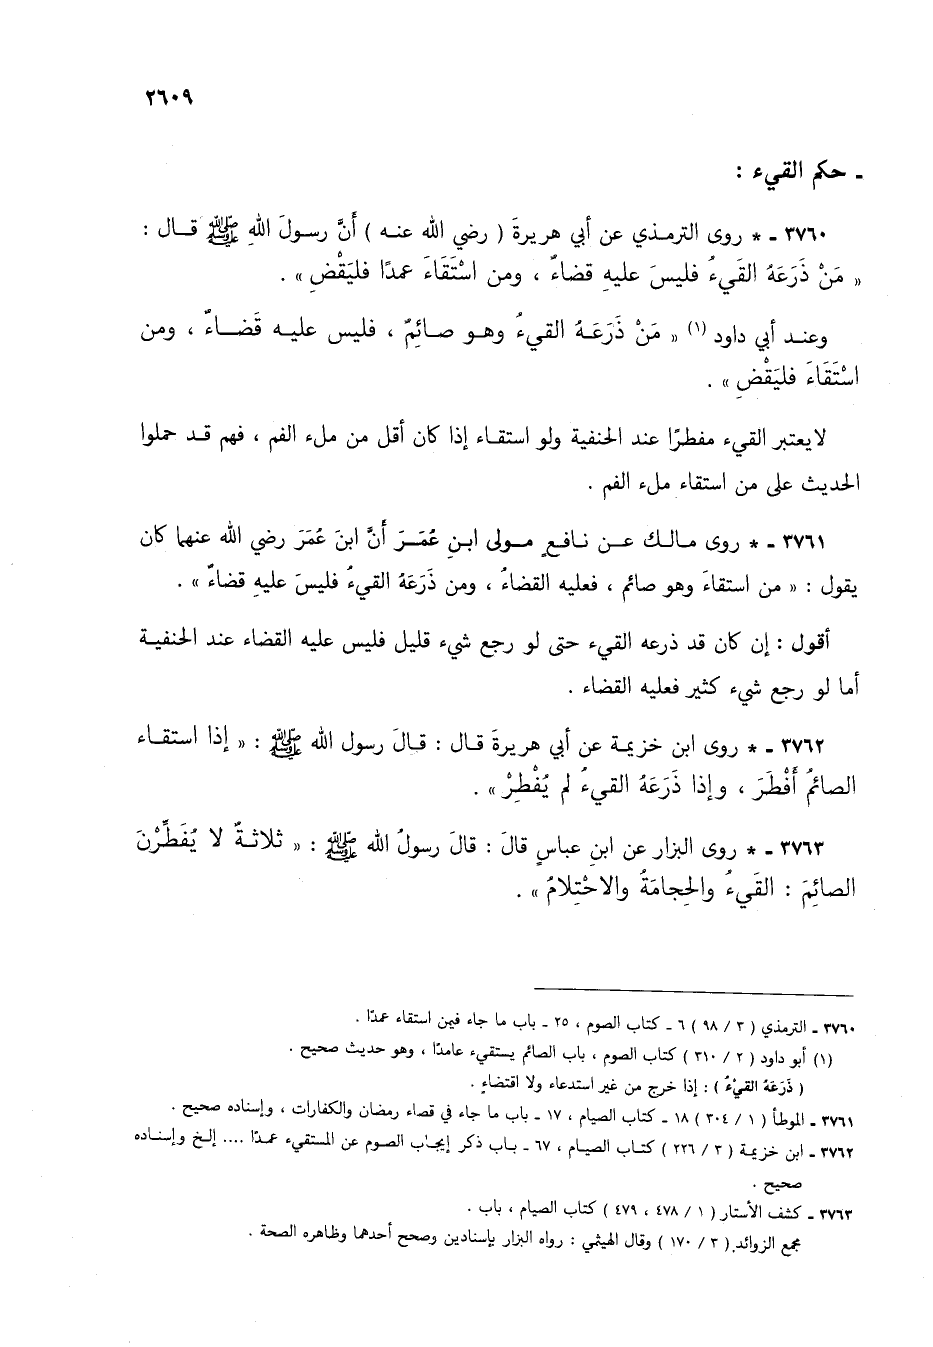 ٢٦٠٩
ـ حكم القيء :
٣٧٦٠ ـ * روى الترمذي عن أبي هريرةَ ( رضي الله عنه ) أَنَّ رسولَ اللهِ ﷺ قال :
« مَنْ ذَرَعَهُ القَيءُ فليسَ عليهِ قضاءٌ ، ومن اسْتَقَاءَ عمدًا فليَقْضِ » .
وعند أبي داود (١) « مَنْ ذَرَعَهُ القيءُ وهو صائِمٌ ، فليس عليه قَضاءٌ ، ومن
اسْتَقَاءَ فليَقْضِ » .
لا يعتبر القيء مفطرًا عند الحنفية ولو استقاء إذا كان أقل من ملء الفم ، فهم قد حملوا
الحديث على من استقاء ملء الفم .
٣٧٦١ ـ * روى مالك عن نافعٍ مولى ابنِ عُمَرَ أَنَّ ابنَ عُمَرَ رضي الله عنهما كان
يقول : « من استقاءَ وهو صائم ، فعليه القضاءُ ، ومن ذَرَعَهُ القيءُ فليسَ عليهِ قضاءٌ » .
أقول : إن كان قد ذرعه القيء حتى لو رجع شيء قليل فليس عليه القضاء عند الحنفية
أما لو رجع شيء كثير فعليه القضاء .
٣٧٦٢ ـ * روى ابن خزيمة عن أبي هريرةَ قال : قالَ رسول الله ﷺ : « إذا استقاء
الصائمُ أَفْطَرَ ، وإذا ذَرَعَهُ القيءُ لم يُفْطِرْ » .
٣٧٦٣ ـ * روى البزار عن ابنِ عباسٍ قالَ : قالَ رسولُ الله ﷺ : « ثلاثةٌ لا يُفَطِّرْنَ
الصائِمَ : القَيءُ والحِجامَةُ والاحْتِلامُ » .
٣٧٦٠ ـ الترمذي ( ٣ / ٩٨ ) ٦ ـ كتاب الصوم ، ٢٥ ـ باب ما جاء فيمن استقاء عمدًا .
(١) أبو داود ( ٢ / ٣١٠ ) كتاب الصوم ، باب الصائم يستقيء عامدًا ، وهو حديث صحيح .
( ذَرَعَهُ القيْءُ ) : إذا خرج من غير استدعاء ولا اقتضاءٍ .
٣٧٦١ ـ الموطأ ( ١ / ٣٠٤ ) ١٨ ـ كتاب الصيام ، ١٧ ـ باب ما جاء في قضاء رمضان والكفارات ، وإسناده صحيح .
٣٧٦٢ ـ ابن خزيمة ( ٣ / ٢٢٦ ) كتاب الصيام ، ٦٧ ـ باب ذكر إيجاب الصوم عن المستقيء عمدًا .... إلخ وإسناده
صحيح .
٣٧٦٣ ـ كشف الأستار ( ١ / ٤٧٨ ، ٤٧٩ ) كتاب الصيام ، باب .
مجمع الزوائد ( ٣ / ١٧٠ ) وقال الهيثمي : رواه البزار بإسنادين وصحح أحدهما وظاهره الصحة .